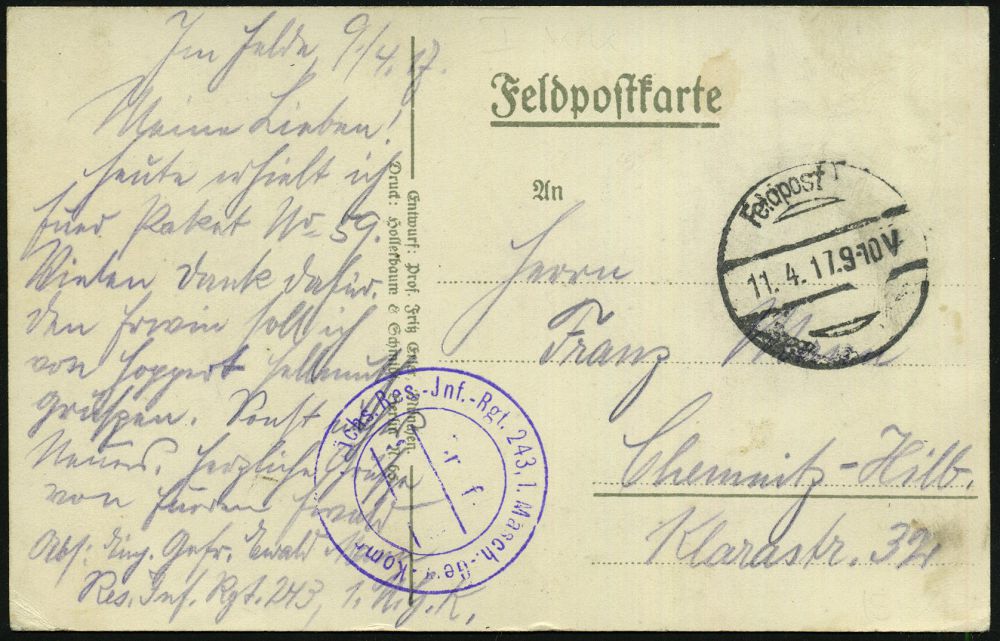 Im Felde, 9./4.17.
Meine Lieben!
Heute erhielt ich
Euer Paket No 59.
Vielen Dank dafür.
Den Erwin soll ich
von Hoppert Hellmuth
grüßen. Sonst nichts
Neues. Herzliche Grüße
von Eurem Ewald
Abs: Einj. Gefr. Ewald
Res. Inf. Rgt. 243, 1. M.G.K.
Entwurf: Prof. Fritz München.
Druck: Hollerbaum & Schmidt, Berlin N. 65
Feldpostkarte
An
Herrn
Franz
Chemnitz-Hilb.
Klarastr. 32
Feldpost
11. 4. 17.9-10V
Res.-Inf.-Rgt. 243, 1. Masch.-Gew.-Komp.